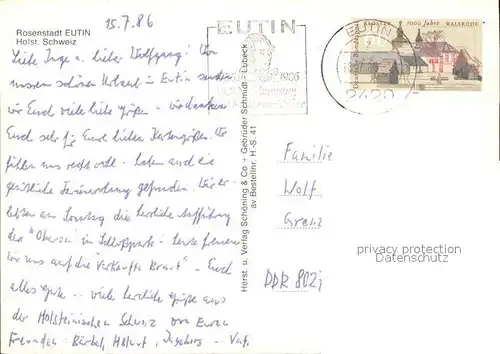 15.7.86
Rosenstadt EUTIN
Holst. Schweiz
Liebe Inge u. lieber Wolfgang! Von
unserem schönen Urlaub in Eutin senden
wir Euch viele liebe Grüße - wir danken
Euch sehr für Eure lieben Kartengrüße. Wir
fühlen uns recht wohl - haben auch eine
gemütliche Ferienwohnung gefunden. Wir er-
lebten am Sonntag die herrliche Aufführung
der "Oberon" im Schloßpark - heute freuen
wir uns auf die "Verkaufte Braut" - Euch
alles Gute - viele herzliche Grüße aus
der Holsteinischen Schweiz von Euren
Freunden - Bärbel, Helmut, Ingeborg -
Herst. u. Verlag Schöning & Co + Gebrüder Schmidt - Lübeck
av Bestellnr. H.-S. 41
EUTIN
EUTIN
2420
KLOSTER 1000 Jahre WALSRODE
Familie
Wolf
DDR 802
privacy protection
Datenschutz